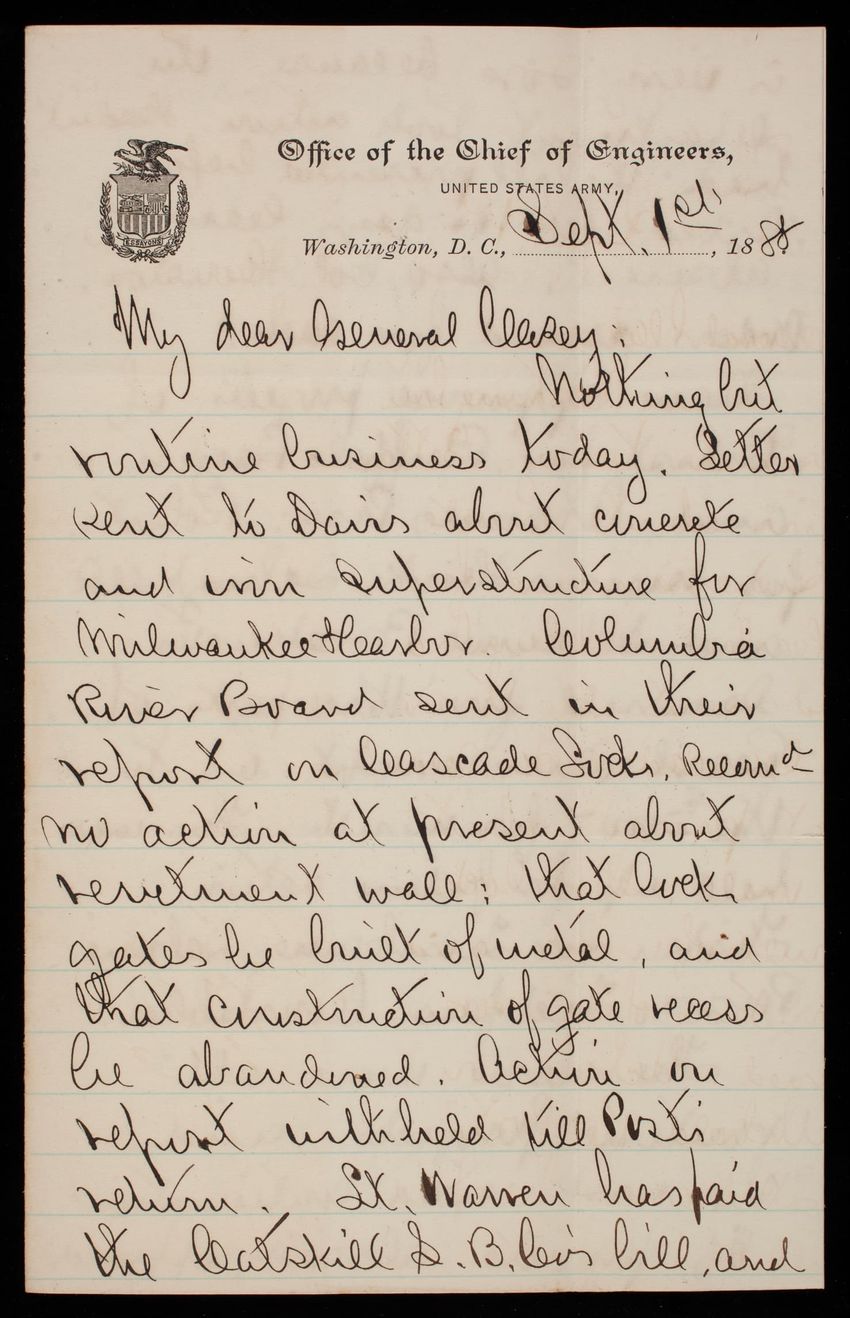 Office of the Chief of Engineers,
UNITED STATES ARMY,
ESSAYONS
Washington, D. C., Sept. 1st, 1888.
My dear General Casey:
Nothing but
routine business today. Letter
sent to Davis about concrete
and iron superstructure for
Milwaukee Harbor. Columbia
River Board sent in their
report on Cascade Locks. Recomd
no action at present about
revetment wall; that lock
gates be built of metal, and
that construction of gate recess
be abandoned. Action on
report withheld till Post's
return. Lt. Warren has paid
the Catskill S. B. Co's bill, and